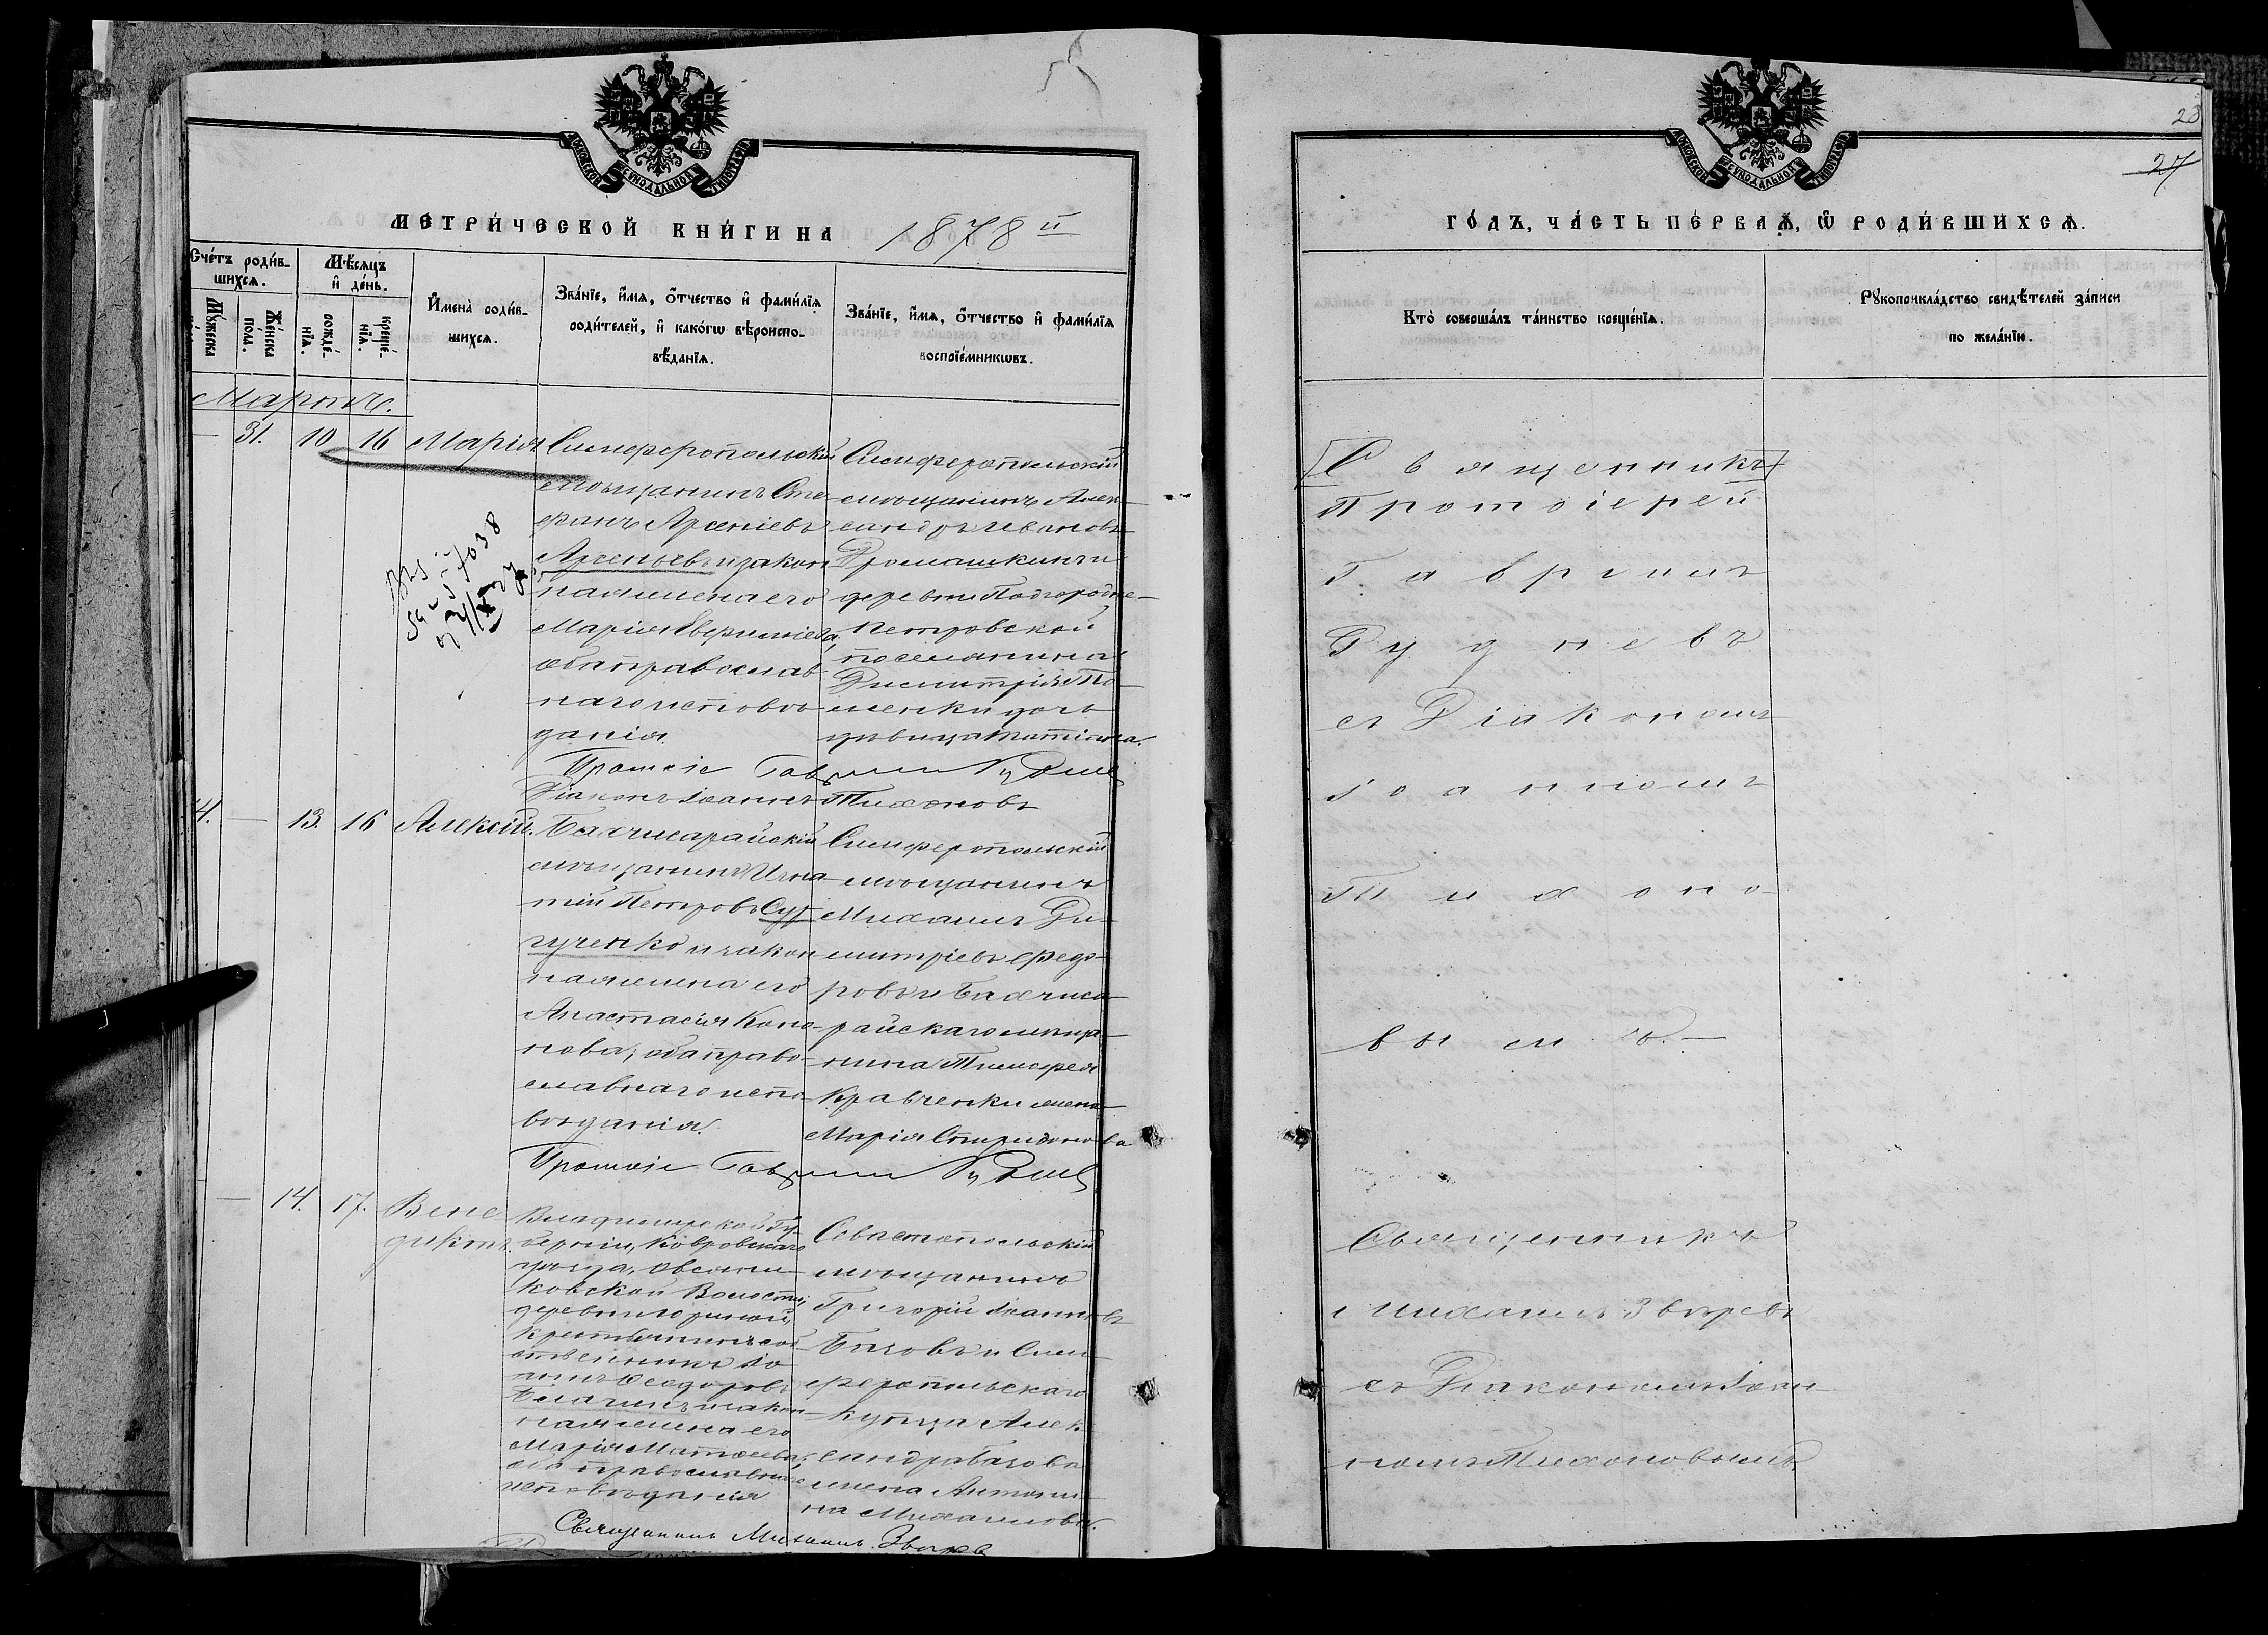 28
27
МОСКОВСКОЙ СѴНОДАЛЬНОЙ ТИПОГРАФІИ
МЕТРИ́ЧЕСКОЙ КНИ́ГИ НА 1878 й
Сче́тъ роди́в-
шихсѧ.
Мѣ́сѧцъ
и҆ де́нь.
Му́жеска
Же́нска
по́ла.
рожде́-
нїѧ.
креще́-
нїѧ.
И҆мена̀ роди́в-
шихсѧ.
Зва́нїе, и҆́мѧ, ѻ҆́тчество и҆ фами́лїѧ
роди́телей, и҆ како́гѡ вѣроиспо-
вѣ́данїѧ.
Зва́нїе, и҆́мѧ, ѻ҆́тчество и҆ фами́лїѧ
воспрїе́мникѡвъ.
Мартъ.
— 31. 10 16 Марія
Симферопольскій
мѣщанинъ Сте-
фанъ Арсеніевъ
Арсеньевъ и закон
ная жена его
Марія
оба православ
наго исповѣ
данія.
Симферопольскій
мѣщанинъ Алек-
сандръ Ивановъ
Ромашкинъ и
деревни Подгородне-
Петровской
поселянина
Димитрія По-
менки дочь
дѣвица Татіана.
Протоіе Гавріилъ Руднев
Діаконъ Іоаннъ Тихоновъ
4. — 13. 16 Алексій.
Бахчисарайскій
мѣщанинъ Игна
тій Петровъ Суг-
гученко и закон
ная жена его
Анастасія Коно-
нова, оба право-
славнаго испо-
вѣданія.
Симферопольскій
мѣщанинъ
Михаилъ Ди-
митріевъ Федо-
ровъ и Бахчиса-
райскаго мѣща-
нина Тимофея
Кравченки жена
Марія Спиридонова
Протоіе Гавріилъ Руднев
— 14. 17. Вене-
диктъ.
Владимірской Гу-
берніи, Ковровскаго
уѣзда, Овсяни-
ковской Волости,
деревни
крестьянинъ соб
ственникъ Іо-
аннъ Ѳеодоровъ
и закон
ная жена его
Марія Матѳеева,
оба православнаго
исповѣданія
Севастопольскій
мѣщанинъ
Григорій Іоанновъ
и Сим-
феропольскаго
купца Алек
сандра
жена Антони-
на Михаилова.
Священникъ Михаилъ Звѣревъ
ГО́ДЪ, ЧА́СТЬ ПЕ́РВАѦ, Ѡ҆ РОДИ́ВШИХСѦ.
Кто̀ соверша́лъ та́инство креще́нїѧ.
Рꙋкоприкла́дство свидѣ́телей за́писи
по жела́нїю.
[Священникъ]
Протоіерей
Гавріилъ
Рудневъ
съ Діакономъ
Іоанномъ
Тихоно-
вымъ.—
Священникъ
Михаилъ Звѣревъ
съ Діакономъ Іоан-
номъ Тихоновымъ.